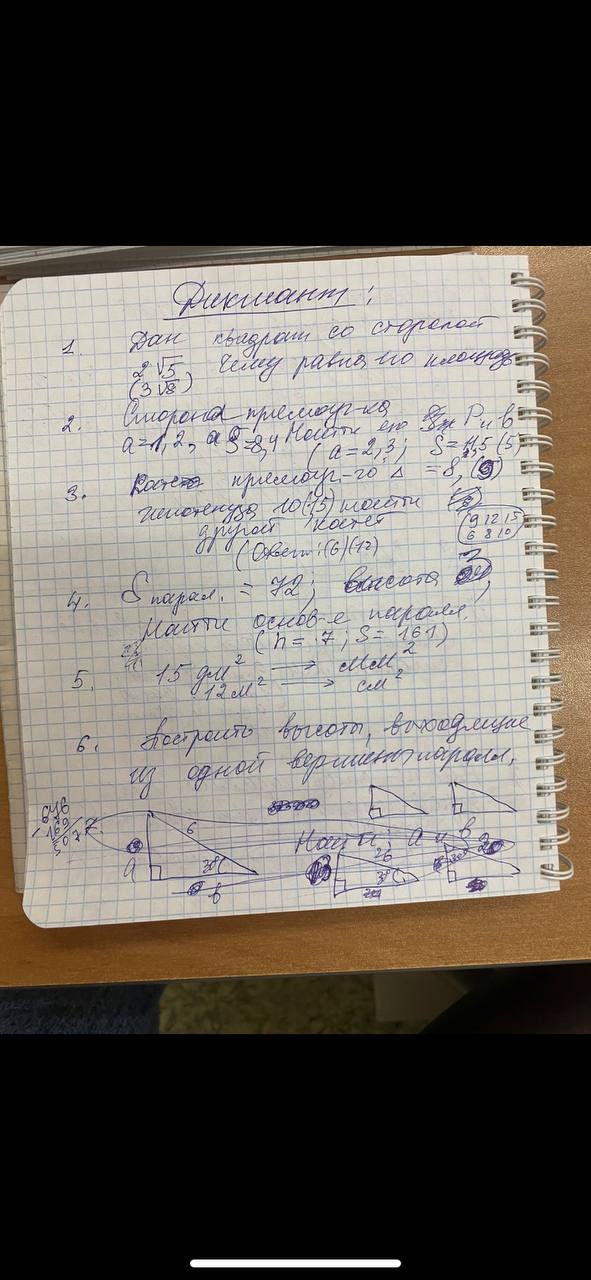 Диктант:
1. Дан квадрат со стороной
2√5 Чему равна его площадь
(3√8)
2. Сторона прямоуг-ка
a=1,2, S=8,4 Найти его P и в
(a=2,3; S=11,5 (5)
3. Катет прямоуг-го Δ = 8, (9)
гипотенуза 10(15) найти
другой катет
(9 12 15
6 8 10)
(Ответ: (6)(12)
4. S парал. = 72; высота 3,
Найти основ-е паралл.
(h = 7; S = 161)
5. 15 дм² → мм²
12м² → см²
6. Построить высоты, выходящие
из одной вершины паралл.
676
169
507
7.
Найти: a и в
6
38
a
в
26